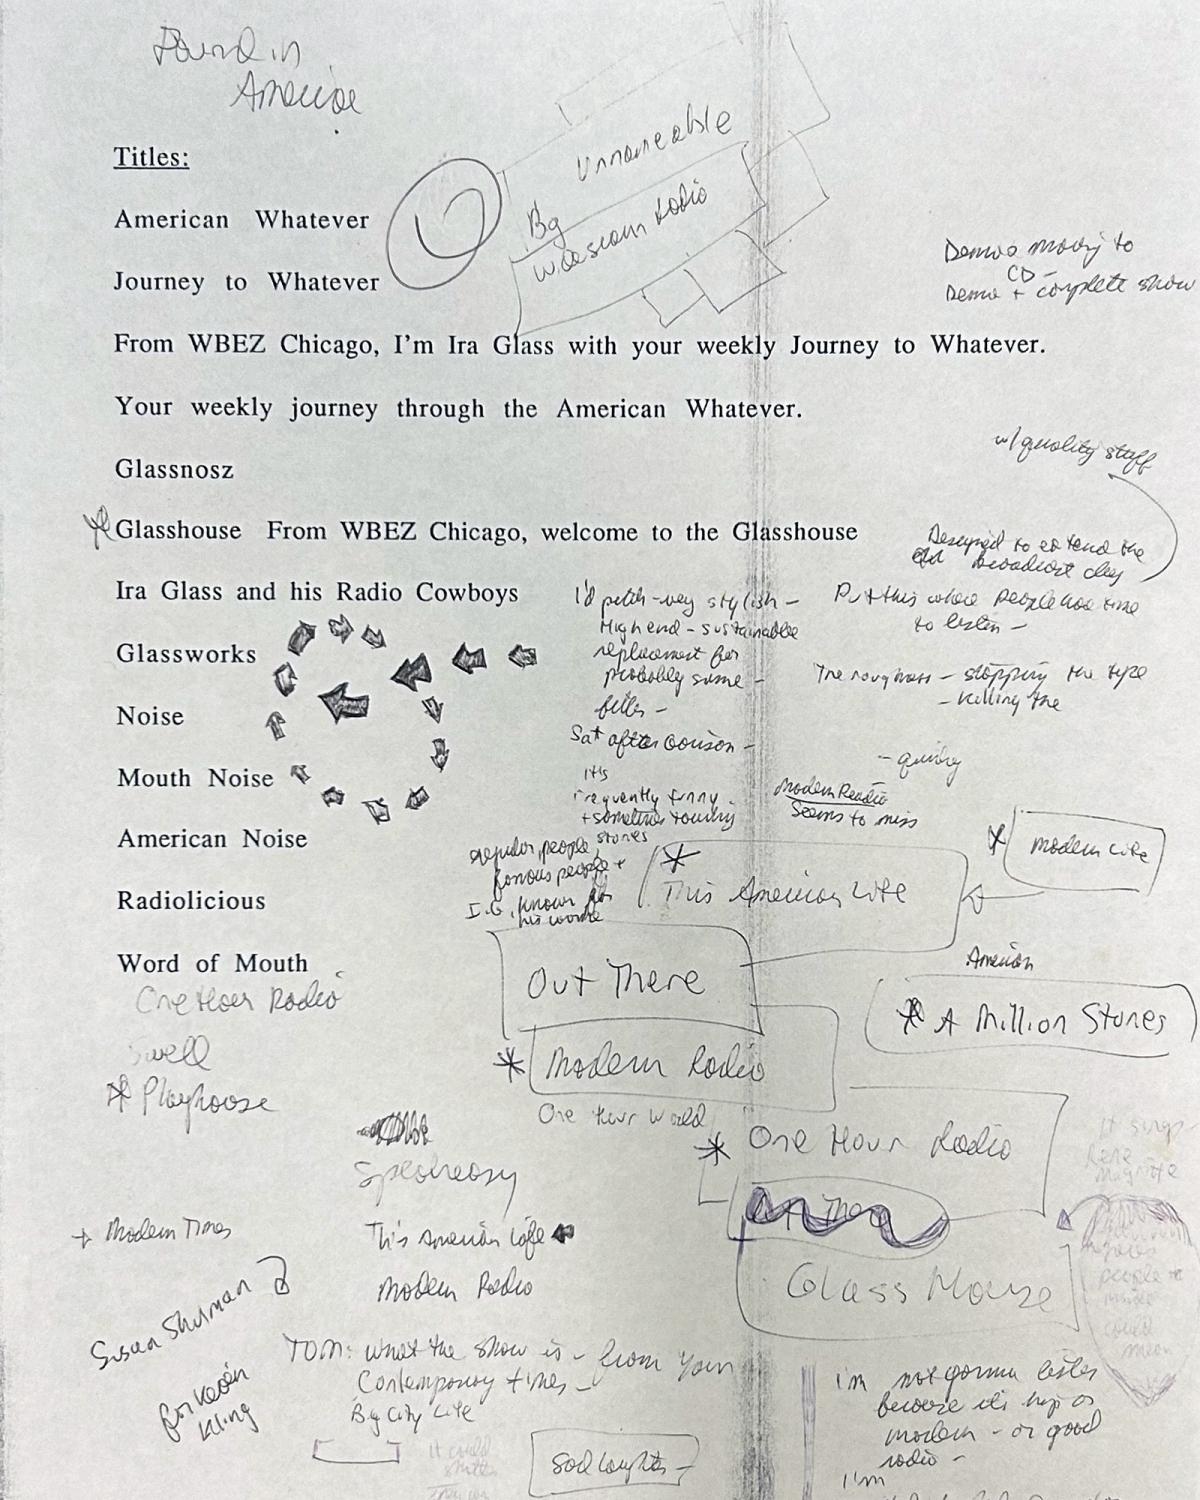 Found in
America
Titles:
Unnameable
Big
Widescreen Radio
American Whatever
Journey to Whatever
Demos moving to
CD -
Demo + complete show
From WBEZ Chicago, I'm Ira Glass with your weekly Journey to Whatever.
Your weekly journey through the American Whatever.
w/ quality stuff
Glassnosz
Glasshouse From WBEZ Chicago, welcome to the Glasshouse
Designed to extend the
broadcast day
Ira Glass and his Radio Cowboys
I'd pitch - very stylish -
High end - sustainable
replacement for
probably some -
filler -
Sat afternoon -
Put this where people have time
to listen -
Glassworks
The roughness - stopping the type
- killing the
Noise
- quirky
Mouth Noise
it's
frequently funny
+ sometimes touching
stories
Modern Radio
Seems to miss
American Noise
regular people,
famous people +
I.G., known for
his work
* Modern Life
* This American Life
Radiolicious
Word of Mouth
One Hour Radio
Out There
American
* A Million Stories
Swell
* Playhouse
* Modern Radio
One Hour World
* One Hour Radio
Speakeasy
Modern Times
This American Life
Modern Radio
Glass House
Susan Shulman
for Kevin
Kling
TOM: what the show is - from your
Contemporary times -
Big City Life
I'm not gonna listen
because it's hip or
modern - or good
radio -
I'm